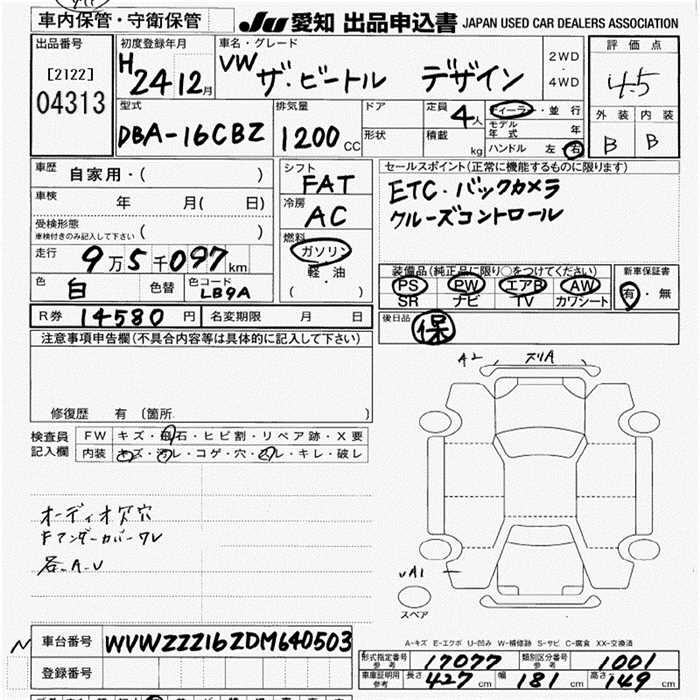 車内保管・守衛保管
JU 愛知 出品申込書 JAPAN USED CAR DEALERS ASSOCIATION
出品番号
[2122]
04313
初度登録年月
H 24 12月
車名・グレード
VW ザ・ビートル デザイン
2WD
・
4WD
評価点
4.5
外装 内装
B B
型式
DBA-16CBZ
排気量
1200 CC
ドア
形状
定員 4人
積載 kg
ディーラー・並行
モデル年式 年
ハンドル 左 右
車歴 自家用・( )
車検 年 月( 日)
受検形態
車検付きのみ記入して下さい ( )
走行 9万5千097km
色 白 色替 色コード LB9A
シフト
FAT
冷房
AC
燃料
ガソリン
軽・油
( )
セールスポイント(正常に機能するものに限ります)
ETC・バックカメラ
クルーズコントロール
装備品(純正品に限り○をつけてください)
PS PW エアB AW
SR ナビ TV カワシート
新車保証書
有・無
R券 14580 円 名変期限 月 日
後日品 保
注意事項申告欄(不具合内容等は具体的に記入して下さい)
修復歴 有 (箇所 )
検査員
記入欄
FW キズ・飛石・ヒビ割・リペア跡・X要
内装 キズ・汚レ・コゲ・穴・スレ・キレ・破レ
オーディオ穴
Fアンダーカバーワレ
各-A-U
A2 スリA
UA1
スペア
A-キズ E-エクボ U-凹み W-補修跡 S-サビ C-腐食 XX-交換済
車台番号 WVWZZZ16ZDM640503
登録番号
形式指定番号 参考 17077 類別区分番号 参考 1001
車庫証明用 参考 長さ 427 cm 幅 181 cm 高さ 149 cm